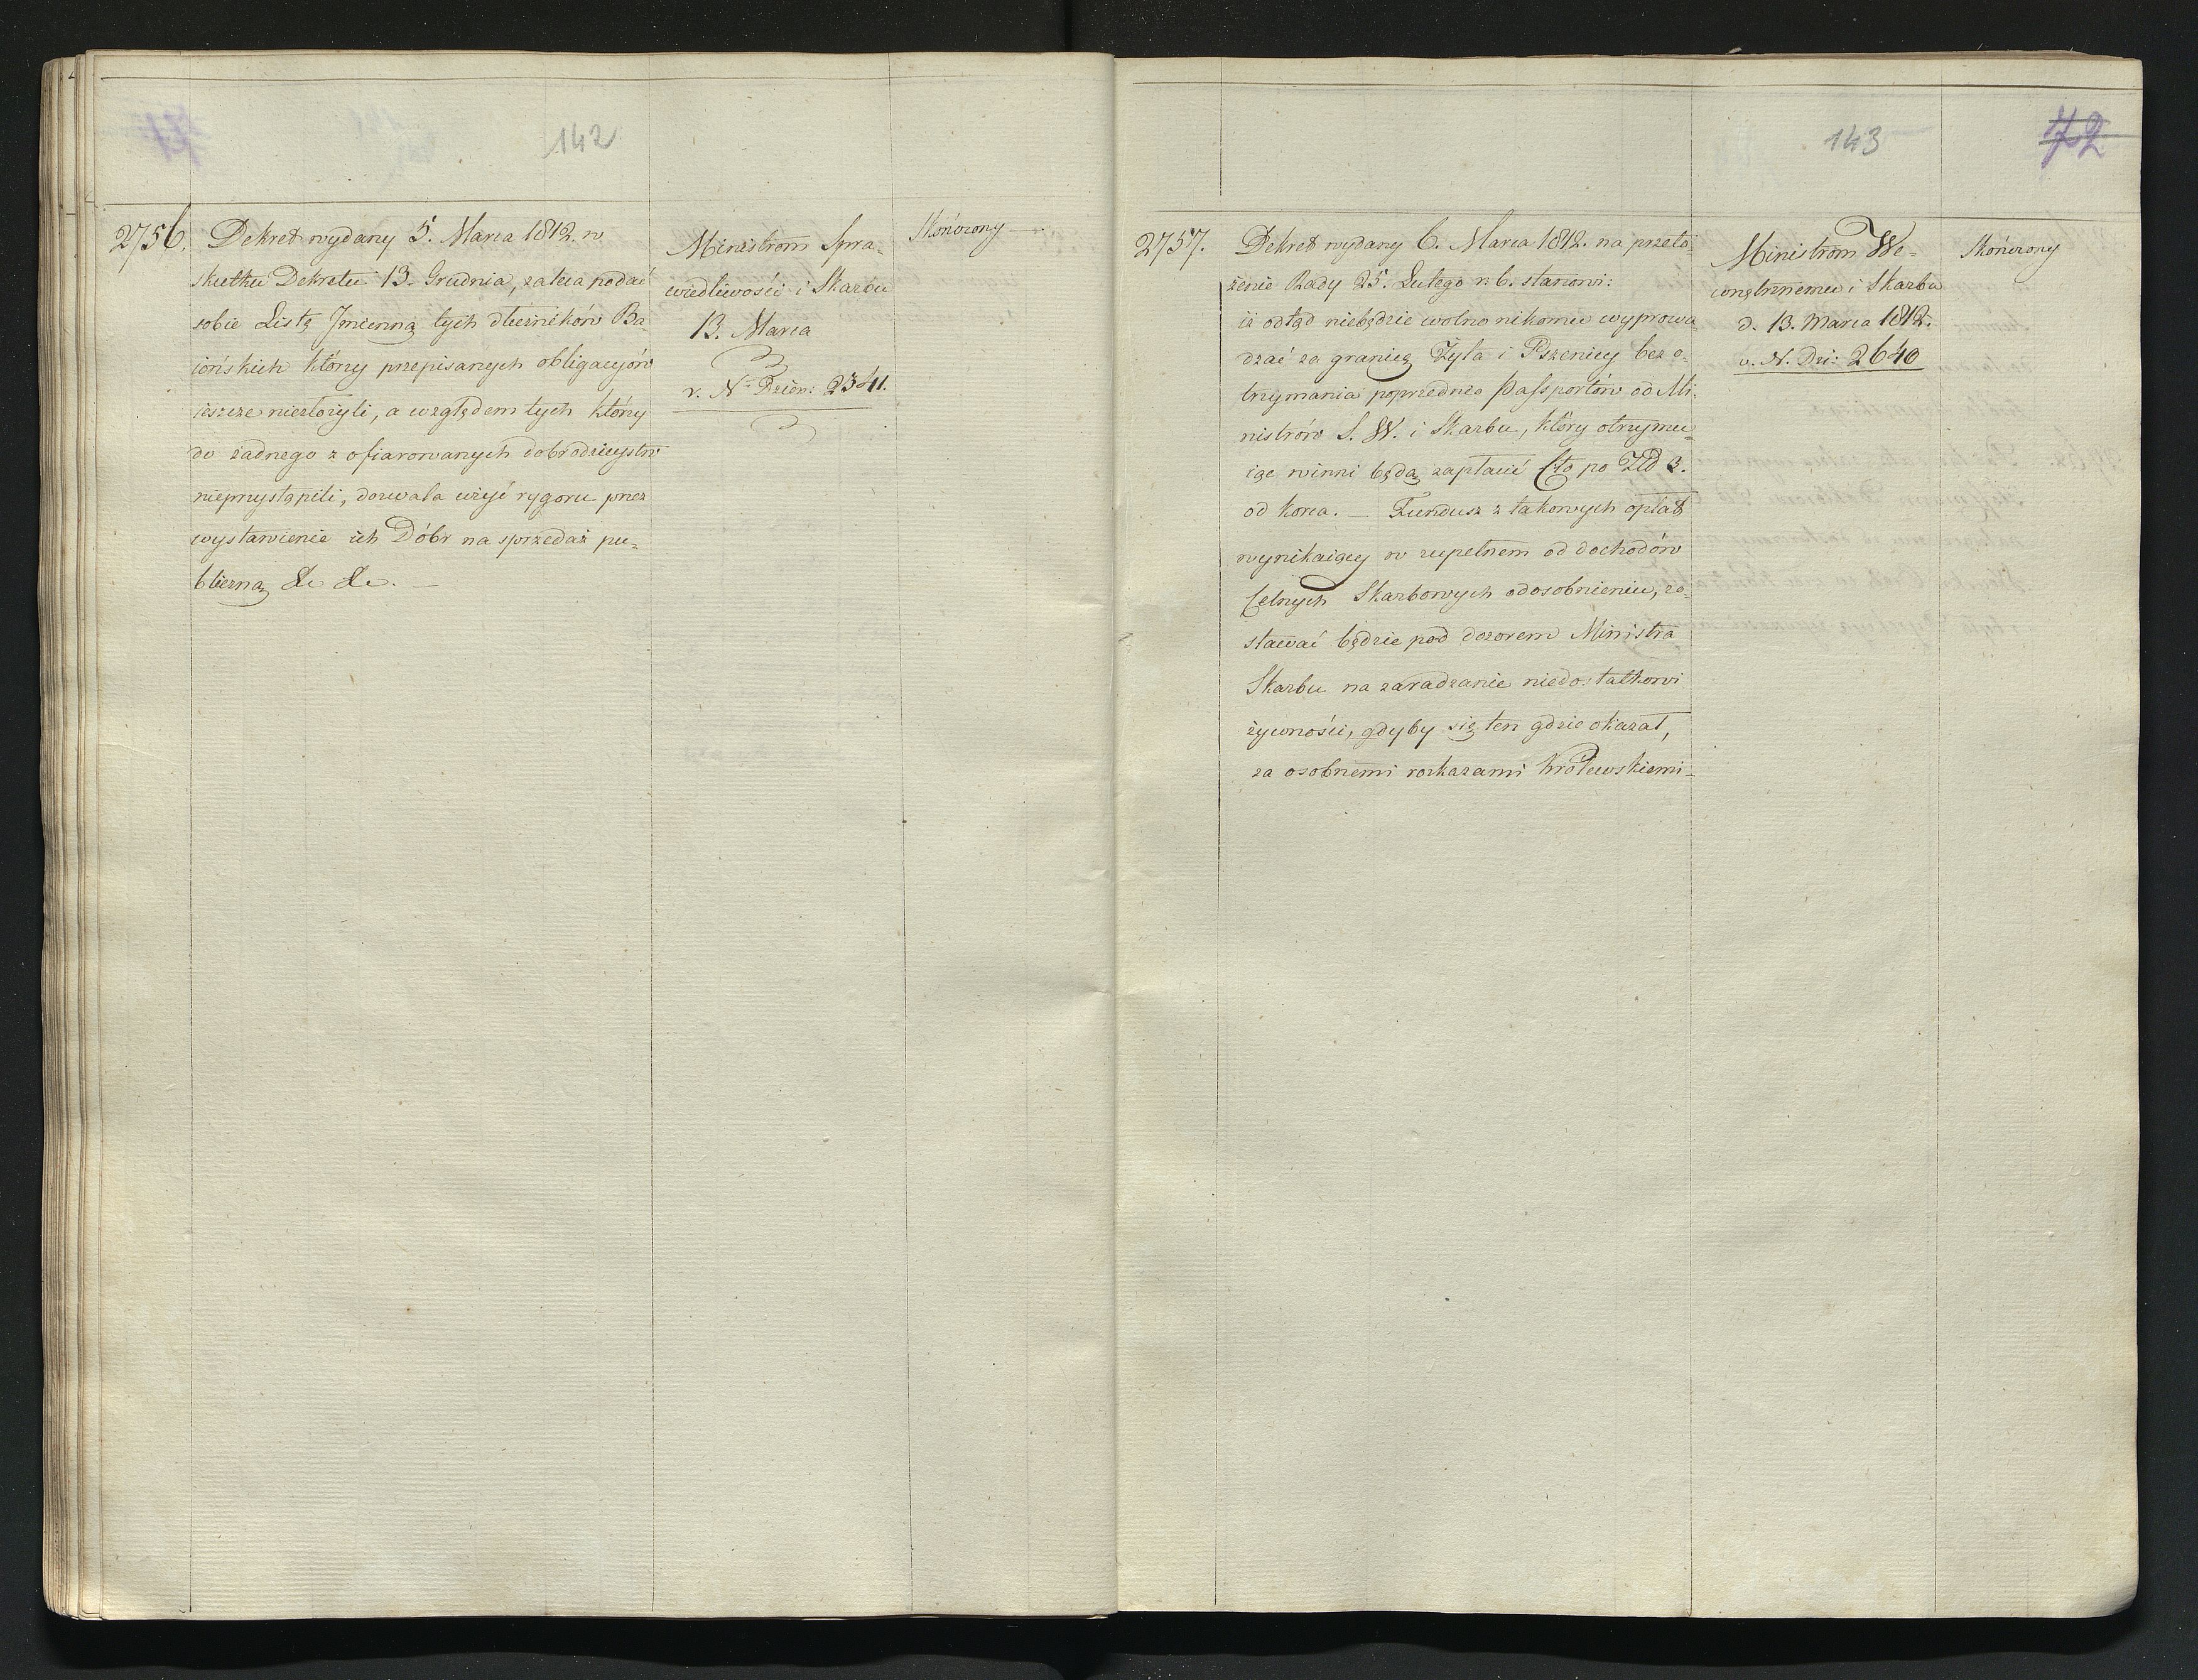 142
2756. Dekret wydany 5. Marca 1812. w
skutku Dekretu 13. Grudnia, zaleca podać
sobie Listę Jmienną tych dłużników Ba-
iońskich którzy przepisanych obligacyów
ieszcze niezłożyli, a względem tych którzy
do żadnego z ofiarowanych dobrodzieystw
nieprzystąpili, dozwala użyć rygoru przez
wystawienie ich Dóbr na sprzedaż pu-
bliczną &c &c. —
Ministrom Spra-
wiedliwości i Skarbu
13. Marca
v. N. Dzien: 2341.
Skończony —
143
72
2757. Dekret wydany 6. Marca 1812. na przeło-
żenie Rady 25. Lutego r. b. stanowi:
iż odtąd niebędzie wolno nikomu wyprowa-
dzać za granicę Żyta i Pszenicy bez o-
trzymania poprzednio Passportów od Mi-
nistrów S. W. i Skarbu, który otrzymu-
iąc winni będą zapłacić Cło po Złd 3.
od korca. — Fundusz z takowych opłat
wynikaiący w zupełnem od dochodów
Celnych Skarbowych odosobnieniu, zo-
stawać będzie pod dozorem Ministra
Skarbu na zaradzanie niedostatkowi
żywności, gdyby się ten gdzie okazał,
za osobnemi rozkazami Królewskiemi -
Ministrom We-
wnętrznemu i Skarbu
d. 13. Marca 1812.
v. N. Dzi: 2640
Skończony